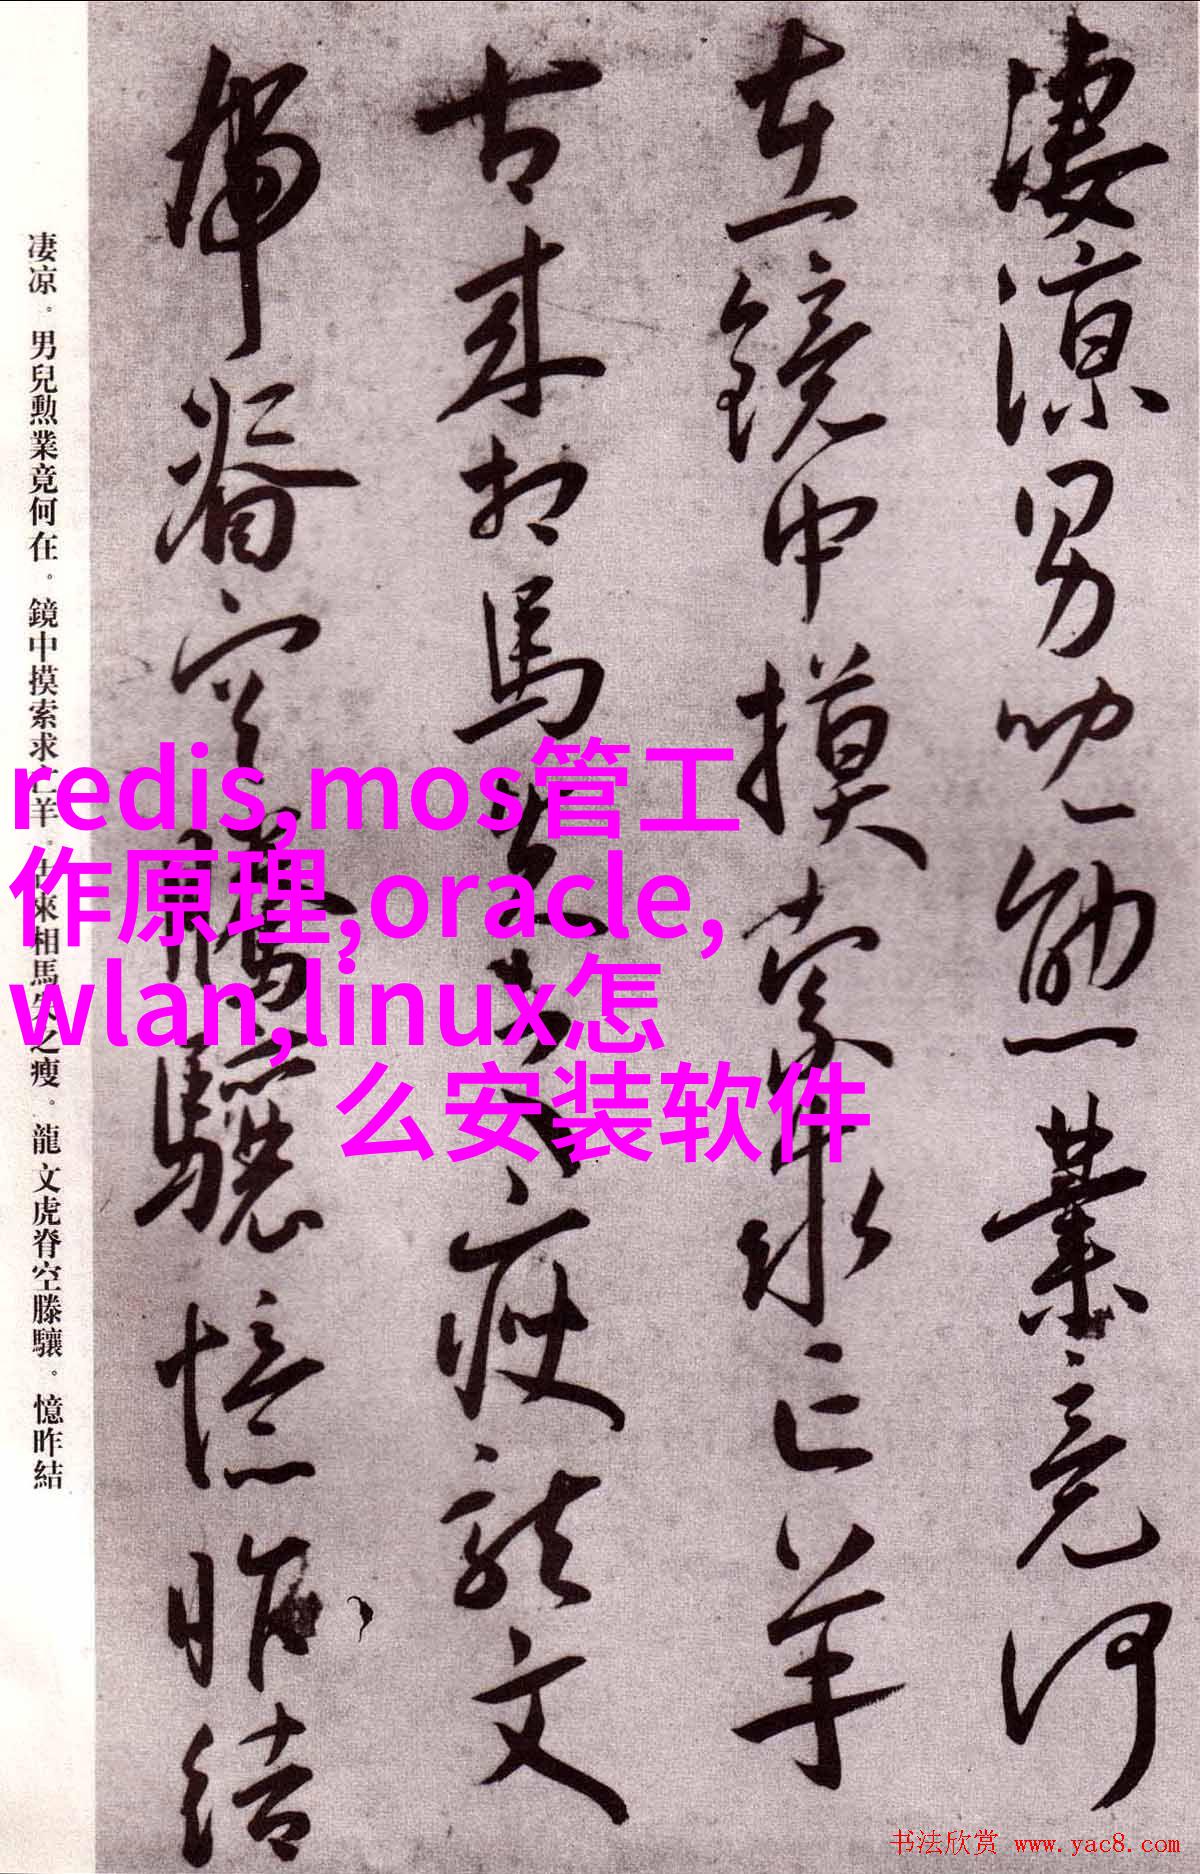 凄涼男兒勳業竟何
在鏡中摸索求亡羊
古來相馬失之瘦龍文
虎脊空騰驤憶昨結
凄凉。男兒勲業竟何在。鏡中摸索求亡羊。古來相馬失之瘦。龍文虎脊空騰驤。憶昨結
redis,mos管工
作原理,oracle,
wlan,linux怎
么安装软件
书法欣赏 www.yac8.com